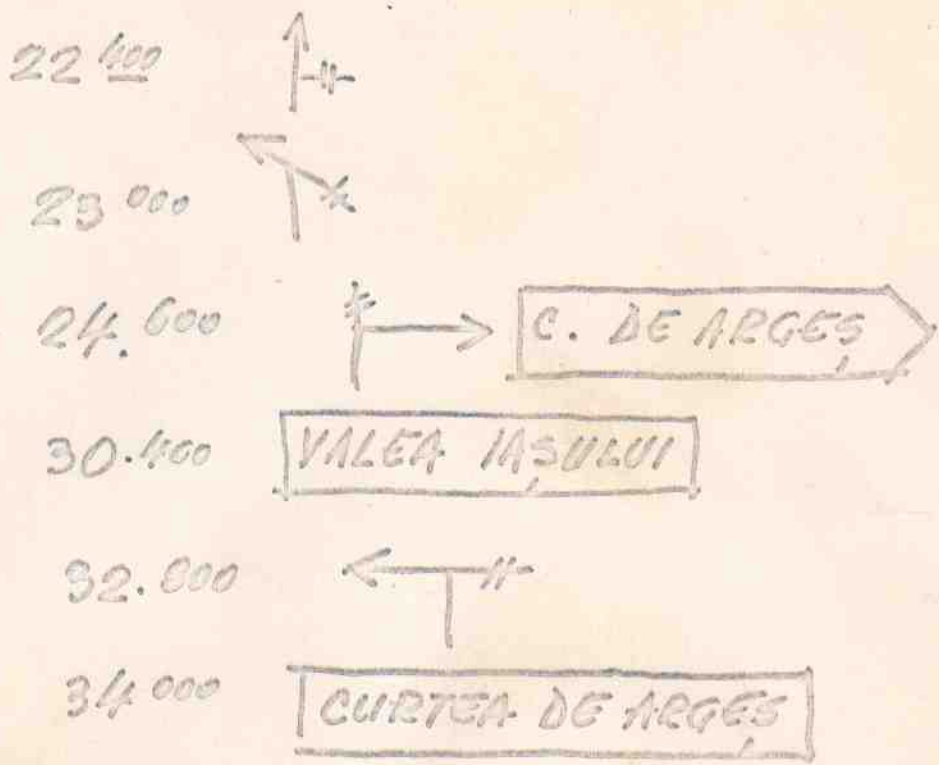 22 400
23 000
24.600 C. DE ARGEȘ
30.400 VALEA IAȘULUI
32.800
34 000 CURTEA DE ARGEȘ